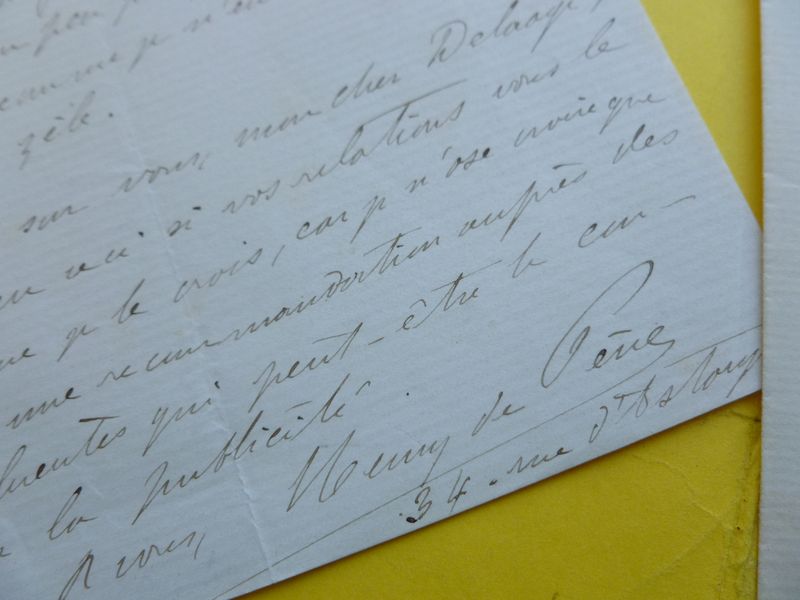 comme je n'en
zèle.
sur vous, mon cher Delaage,
si vos relations vous le
je le crois, car je n'ose croire que
une recommandation auprès des
fluentes qui peut-être le con-
la publicité.
A vous, Henry de Pène
34. rue d'Astorg